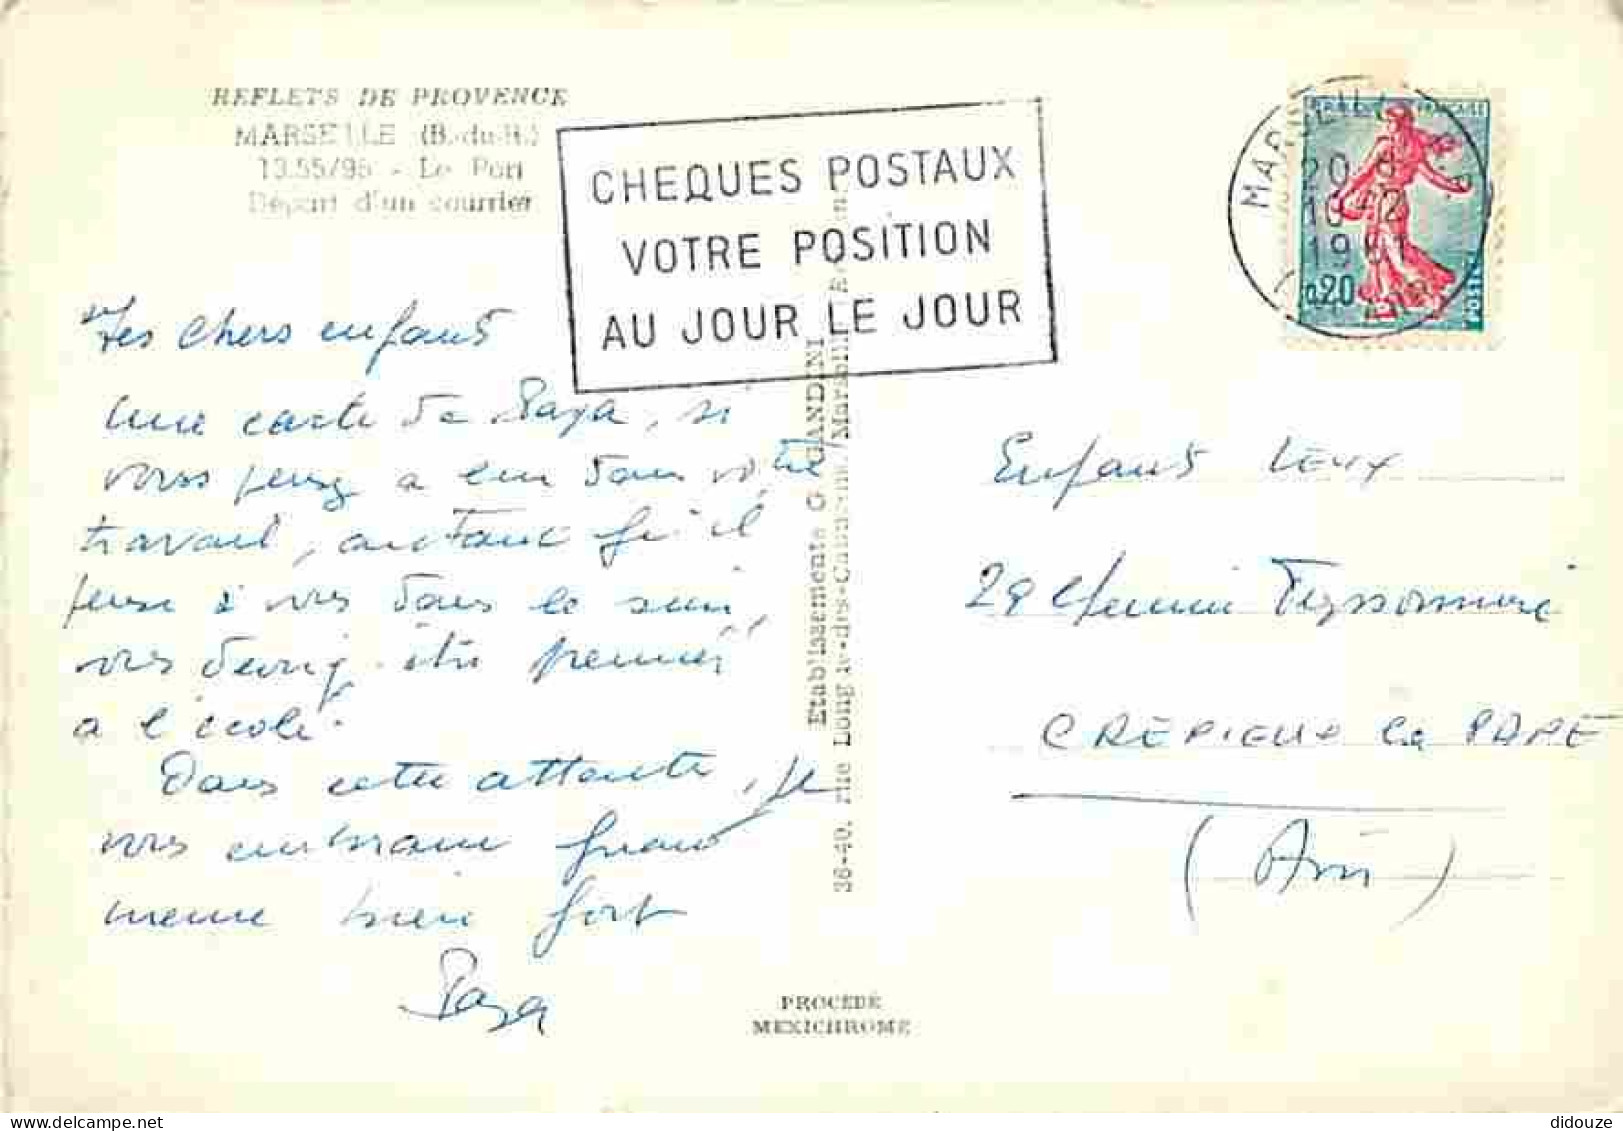 REFLETS DE PROVENCE
MARSEILLE (B.-du-R.)
13.55/95 - Le Port
Départ d'un courrier
CHEQUES POSTAUX
VOTRE POSITION
AU JOUR LE JOUR
MARSEILLE
20 H
10-2
1961
FRANÇAISE
0,20
POSTES
Mes chers enfants
une carte de Papa, si
vous pensez a lui dans votre
travail, autant qu'il
pense à vous dans le sien,
vous devriez être premier
a l'école.
Dans cette attente, je
vous embrasse quand
meme bien fort
Papa
Etablissements G. GANDINI
36-40, rue Longue-des-Capucins, Marseille
PROCÉDÉ
MEXICHROME
Enfants LEUX
29 Chemin Teyssonnière
CREPIEUX La PAPE
(Ain)
didouze